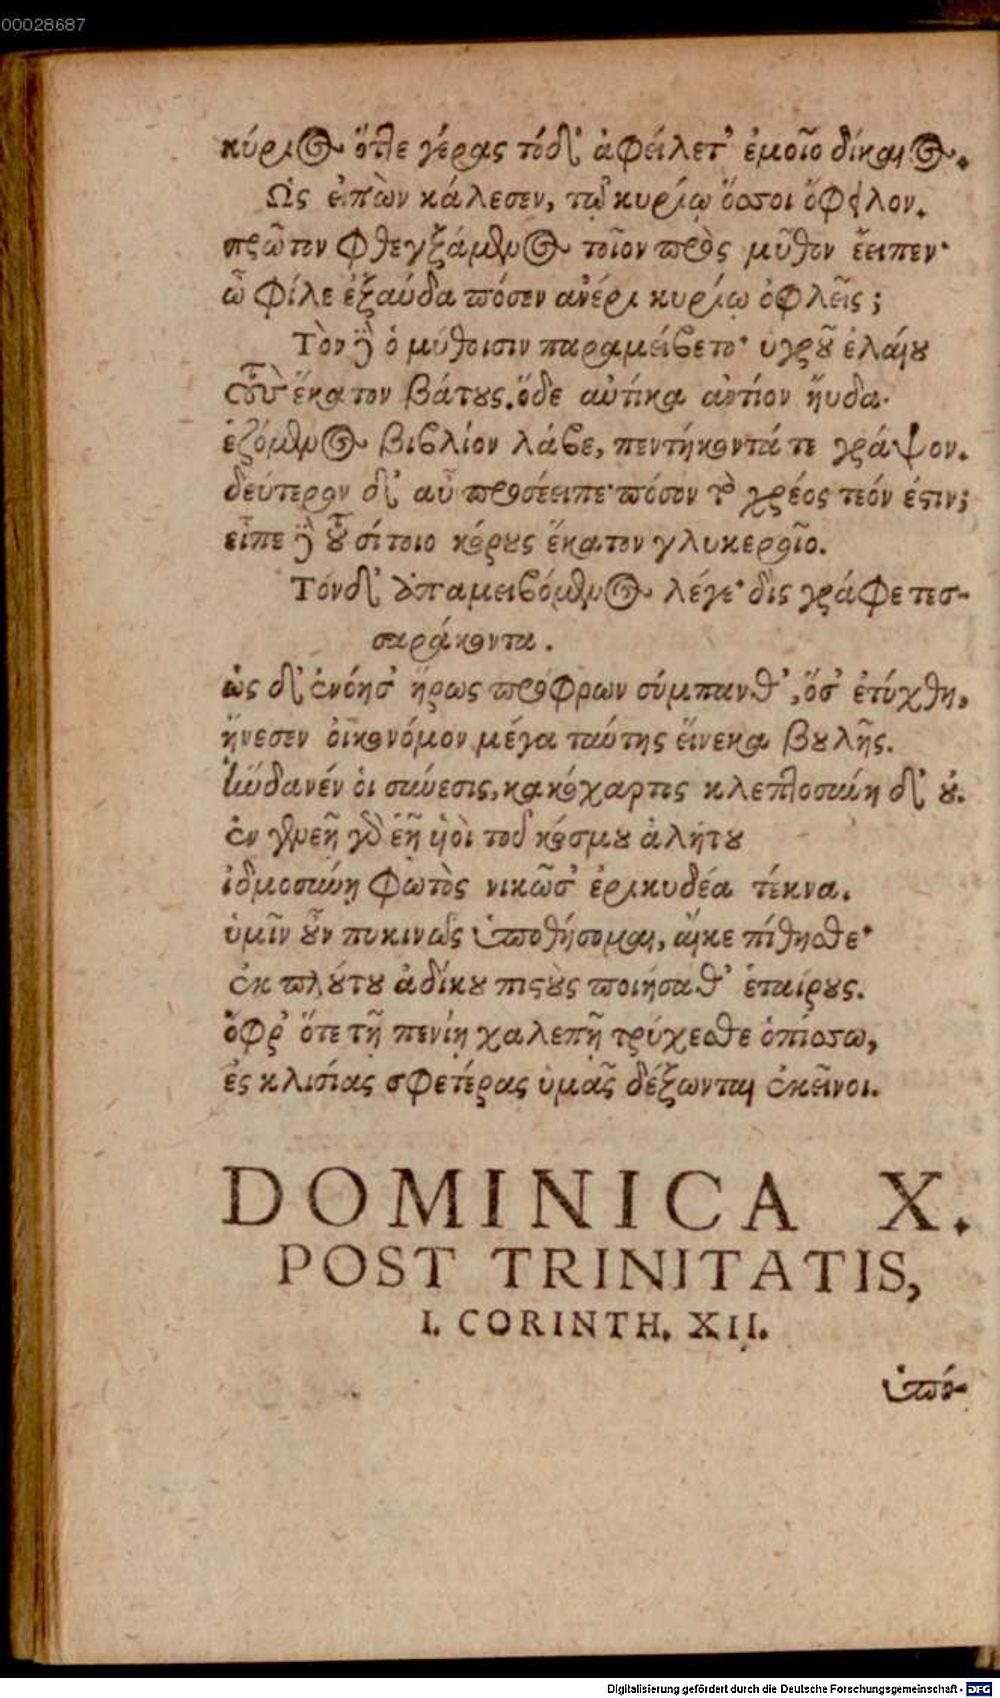 00028687
κύριος ὅττε γέρας τόδ' ἀφείλετ' ἐμοῖο δίκαιος.
Ὡς εἰπὼν κάλεσεν, τῷ κυρίῳ ὅσσοι ὄφειλον.
πρῶτον φθεγξάμενος τοῖον πρὸς μῦθον ἔειπεν·
ὦ φίλε ἐξαύδα πόσεν ἀνέρι κυρίῳ ὀφλεῖς;
Τὸν δὲ ὁ μύθοισιν παραμείβετο· ὑγροῦ ἐλαίου
ἕκατον βάτους. ὅδε αὐτίκα ἀντίον ἤυδα·
ἑζόμενος βιβλίον λάβε, πεντήκοντά τε γράψον.
δεύτερον δ' αὖ προσέειπε· πόσον τὸ χρέος τεόν ἐστιν;
εἶπε δὲ σίτοιο κόρους ἕκατον γλυκεροῖο.
Τόνδ' ἀπαμειβόμενος λέγε· δὶς γράφε τεσ-
σαράκοντα.
ὡς δ' ἐνόησ' ἥρως πρόφρων σύμπανθ', ὅσ' ἐτύχθη,
ἤνεσεν οἰκονόμον μέγα ταύτης εἵνεκα βουλῆς.
οἱ σύνεσις, κακόχαρτος κλεπτοσύνη δ' οὐ.
ἐν γενεῇ γὰρ ἑῇ υἱοὶ τοῦ κόσμου ἀλήτου
ἰδμοσύνῃ φωτὸς νικῶσ' ἐρικυδέα τέκνα.
ὑμῖν οὖν πυκινῶς ὑποθήσομαι, αἴκε πίθησθε·
ἐκ πλούτου ἀδίκου πιστοὺς ποιήσασθ' ἑταίρους.
ὄφρ' ὅτε τῇ πενίῃ χαλεπῇ τρύχεσθε ὀπίσσω,
ἐς κλισίας σφετέρας ὑμᾶς δέξωνται ἐκεῖνοι.
DOMINICA X.
POST TRINITATIS,
I. CORINTH. XII.
ὑπό-
Digitalisierung gefördert durch die Deutsche Forschungsgemeinschaft - DFG